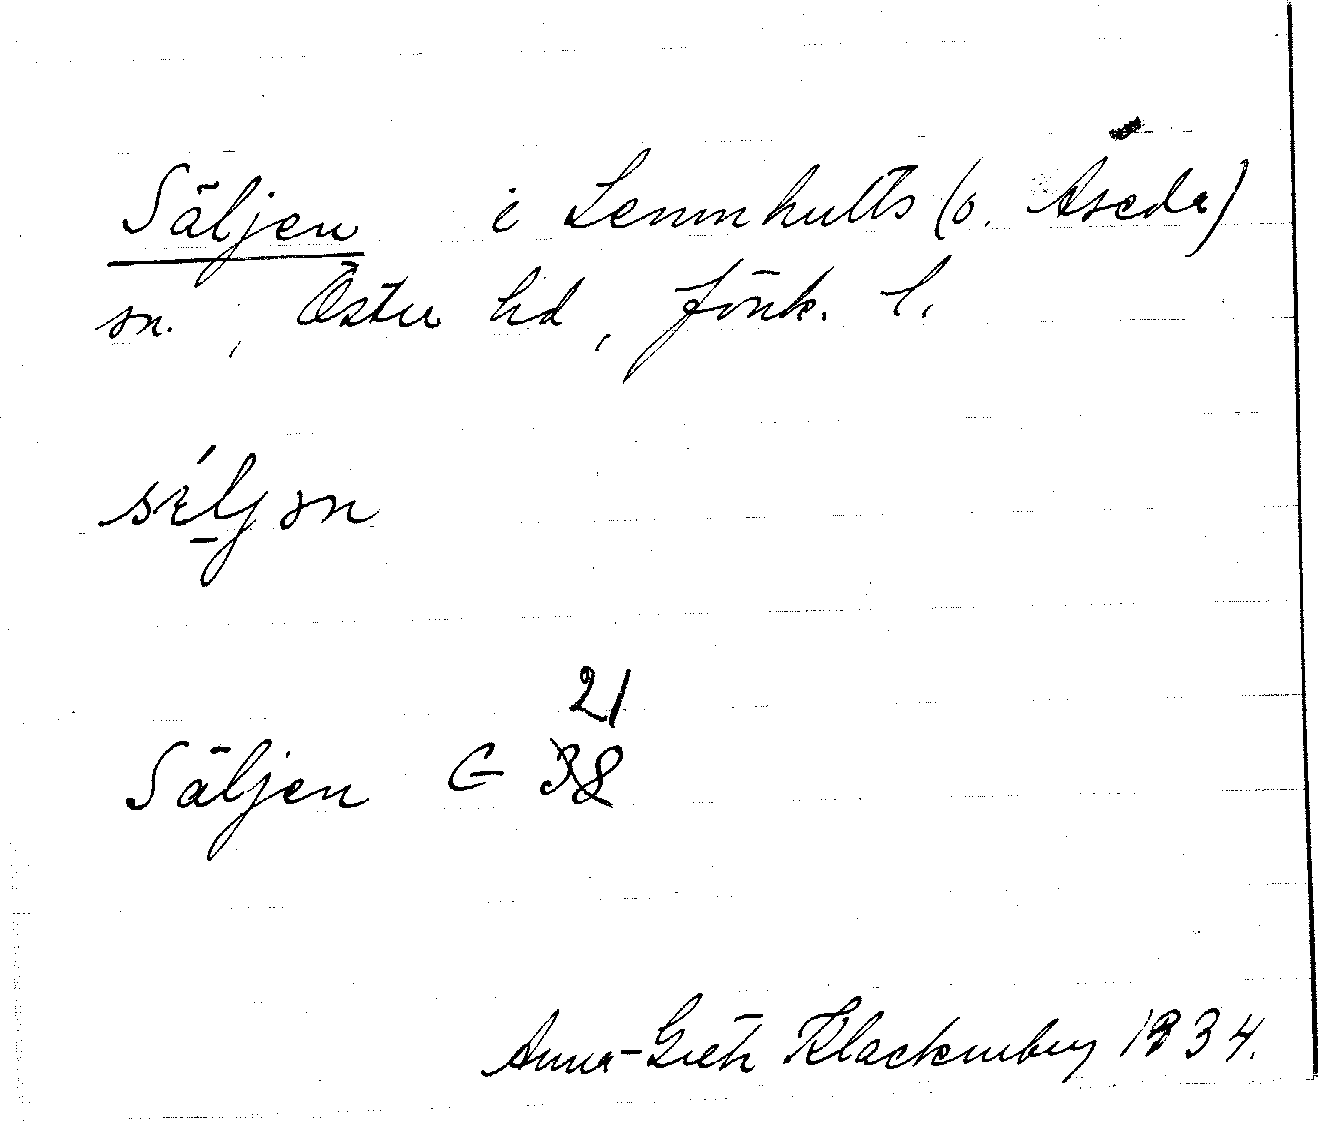 Säljen i Lemnhults (o. Åseda)
sn., Östra hd, Jönk. l.
Säljen G 38
21
Anna-Greta Klackenberg 1934.